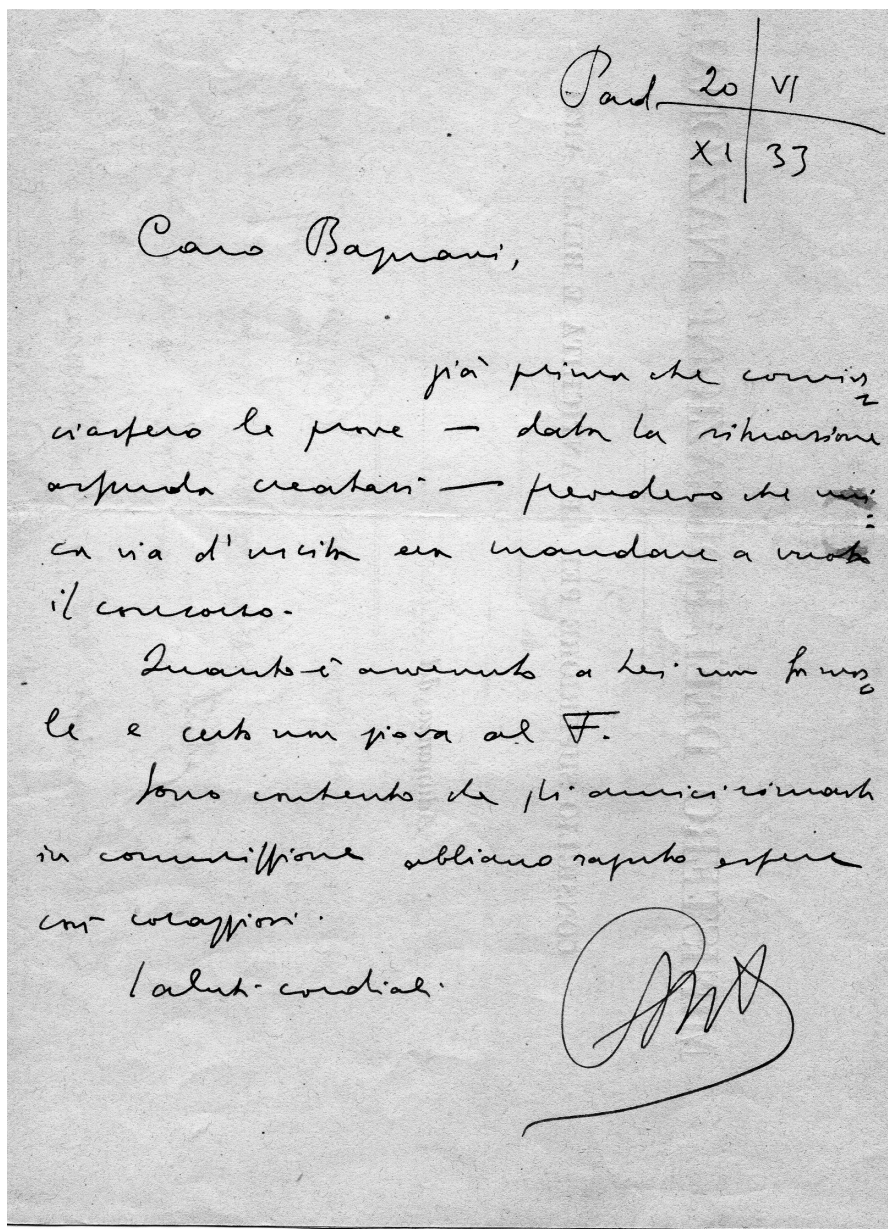 Pad 20 VI
XI 33
Caro Bagnani,
già prima che comin=
ciassero le prove — data la situazione
assurda creatasi — prevedevo che uni=
ca via d'uscita era mandare a vuoto
il concorso.
Quanto è avvenuto a Lei non
le e certo non giova al F.
Sono contento che gli amici rimasti
in commissione abbiano saputo essere
così coraggiosi.
Saluti cordiali